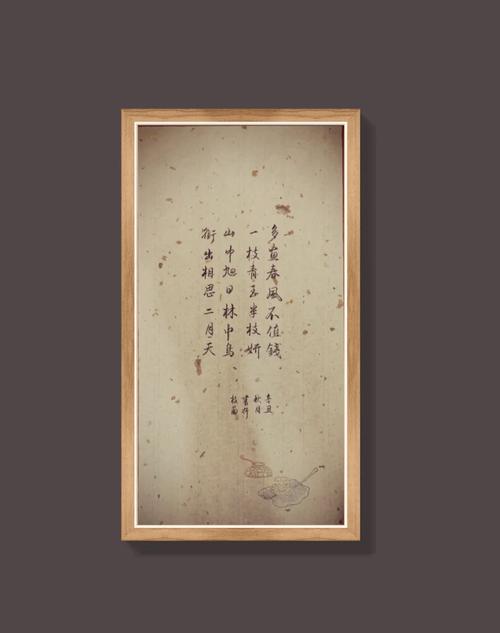 多畫春風不值錢
一枝青玉半枝妍
山中旭日林中鳥
銜出相思二月天
辛丑
秋月
書折
枝蘭